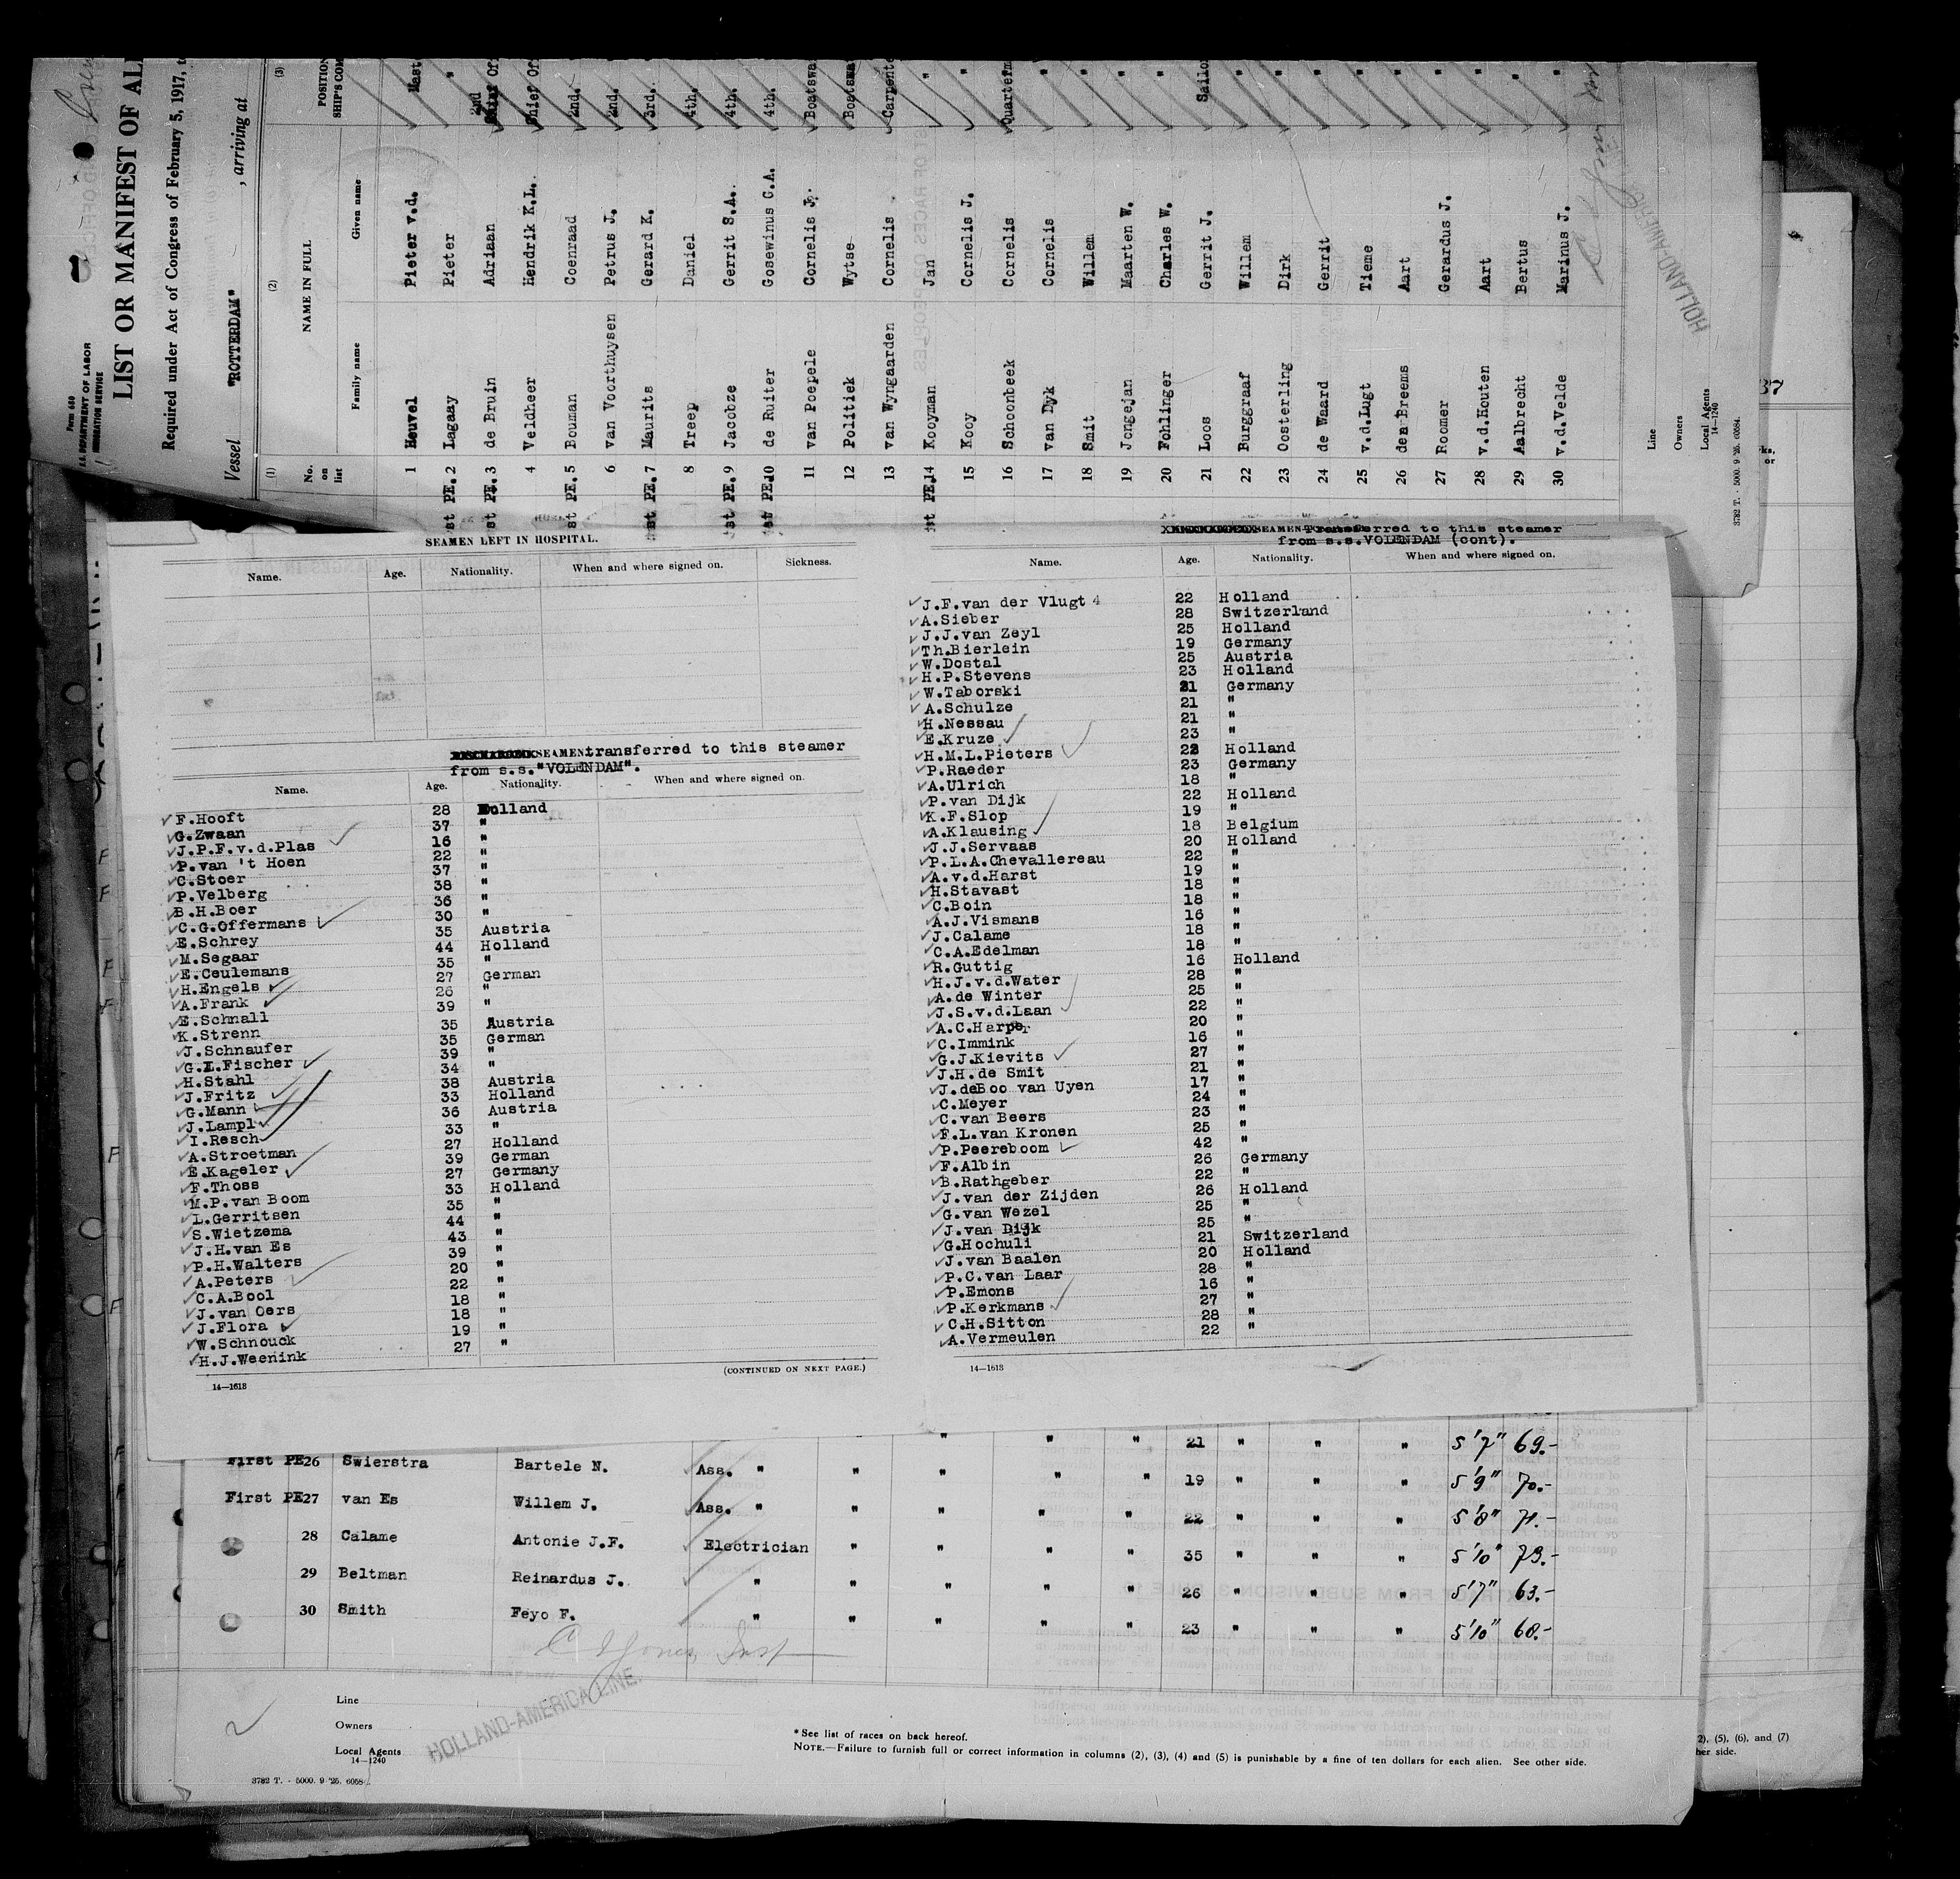 Form 680
U.S. DEPARTMENT OF LABOR
IMMIGRATION SERVICE
LIST OR MANIFEST OF AL
Required under Act of Congress of February 5, 1917, t
Vessel "ROTTERDAM" , arriving at
(1) (2) (3)
No. on list NAME IN FULL POSITION SHIP'S COM
Family name Given name
1 Heuvel Pieter v.d. Mast
1st PE. 2 Lagaay Pieter "
1st PE. 3 de Bruin Adriaan 2nd Of
4 Veldheer Hendrik K.L. Chief Of
1st PE. 5 Bouman Coenraad 2nd.
6 van Voorthuysen Petrus J. 2nd.
1st PE. 7 Maurits Gerard K. 3rd.
8 Treep Daniel 4th.
1st PE. 9 Jacobze Gerrit S.A. 4th.
1st PE. 10 de Ruiter Gosewinus G.A. 4th.
11 van Poepele Cornelis J. Boatswa
12 Politiek Wytse Boatswa
13 van Wyngaarden Cornelis Carpente
1st PE. 14 Kooyman Jan "
15 Kooy Cornelis J. "
16 Schoonbeek Cornelis Quarterm
17 van Dyk Cornelis "
18 Smit Willem "
19 Jongejan Maarten W. "
20 Fohlinger Charles W. "
21 Loos Gerrit J. Sailo
22 Burggraaf Willem "
23 Oosterling Dirk "
24 de Waard Gerrit "
25 v.d.Lugt Tieme "
26 den Breems Aart "
27 Roomer Gerardus J. "
28 v.d.Houten Aart "
29 Aalbrecht Bertus "
30 v.d.Velde Marinus J. "
Line
Owners
Local Agents
14—1240
3782 T. - 5000. 9 '25. 60584.
HOLLAND-AMERIC
37
SEAMEN LEFT IN HOSPITAL.
Name. Age. Nationality. When and where signed on. Sickness.
DISCHARGED SEAMEN transferred to this steamer
from s.s."VOLENDAM".
Name. Age. Nationality. When and where signed on.
F.Hooft 28 Holland
G.Zwaan 37 "
J.P.F.v.d.Plas 16 "
P.van 't Hoen 22 "
C.Stoer 37 "
P.Velberg 38 "
B.H.Boer 36 "
C.G.Offermans 30 "
E.Schrey 35 Austria
M.Segaar 44 Holland
E.Ceulemans 35 "
H.Engels 27 German
A.Frank 26 "
E.Schnall 39 "
K.Strenn 35 Austria
J.Schnaufer 35 German
G.L.Fischer 39 "
H.Stahl 34 "
J.Fritz 38 Austria
G.Mann 33 Holland
J.Lampl 36 Austria
I.Resch 33 "
A.Stroetman 27 Holland
E.Kageler 39 German
F.Thoss 27 Germany
M.P.van Boom 33 Holland
L.Gerritsen 35 "
S.Wietzema 44 "
J.H.van Es 43 "
P.H.Walters 39 "
A.Peters 20 "
C.A.Bool 22 "
J.van Oers 18 "
J.Flora 18 "
W.Schnouck 19 "
H.J.Weenink 27 "
(CONTINUED ON NEXT PAGE.)
14—1613
DISCHARGED SEAMEN Transferred to this steamer
from s.s.VOLENDAM (cont).
Name. Age. Nationality. When and where signed on.
J.F.van der Vlugt 22 Holland
A.Sieber 28 Switzerland
J.J.van Zeyl 25 Holland
Th.Bierlein 19 Germany
W.Dostal 25 Austria
H.P.Stevens 23 Holland
W.Taborski 21 Germany
A.Schulze 21 "
H.Nessau 21 "
E.Kruze 23 "
H.M.L.Pieters 22 Holland
P.Raeder 23 Germany
A.Ulrich 18 "
P.van Dijk 22 Holland
K.F.Slop 19 "
A.Klausing 18 Belgium
J.J.Servaas 20 Holland
P.L.A.Chevallereau 22 "
A.v.d.Harst 19 "
H.Stavast 18 "
C.Boin 18 "
A.J.Vismans 16 "
J.Calame 18 "
C.A.Edelman 18 "
R.Guttig 16 Holland
H.J.v.d.Water 28 "
A.de Winter 25 "
J.S.v.d.Laan 22 "
A.C.Harper 20 "
C.Immink 16 "
G.J.Kievits 27 "
J.H.de Smit 21 "
J.deBoo van Uyen 17 "
C.Meyer 24 "
C.van Beers 23 "
F.L.van Kronen 25 "
P.Peereboom 42 "
F.Albin 26 Germany
B.Rathgeber 22 "
J.van der Zijden 26 Holland
G.van Wezel 25 "
J.van Dijk 25 "
G.Hochuli 21 Switzerland
J.van Baalen 20 Holland
P.C.van Laar 28 "
P.Emons 16 "
P.Kerkmans 27 "
C.H.Sitton 28 "
A.Vermeulen 22 "
14—1613
First PE 26 Swierstra Bartele N. Ass. " " " " " 21 " " " 5'7" 69.-
First PE 27 van Es Willem J. Ass. " " " " " 19 " " " 5'9" 70.-
28 Calame Antonie J.F. Electrician " " " " 22 " " " 5'8" 71.-
29 Beltman Reinardus J. " " " " " 35 " " " 5'10" 79.-
30 Smith Feyo F. " " " " " 26 " " " 5'7" 63.-
23 " " " 5'10" 68.-
C I Jones, Inst
Line
Owners
Local Agents
14—1240
HOLLAND-AMERICA LINE.
3782 T. - 5000. 9 '25. 6058
* See list of races on back hereof.
NOTE.—Failure to furnish full or correct information in columns (2), (3), (4) and (5) is punishable by a fine of ten dollars for each alien. See other side.
2), (5), (6), and (7)
her side.